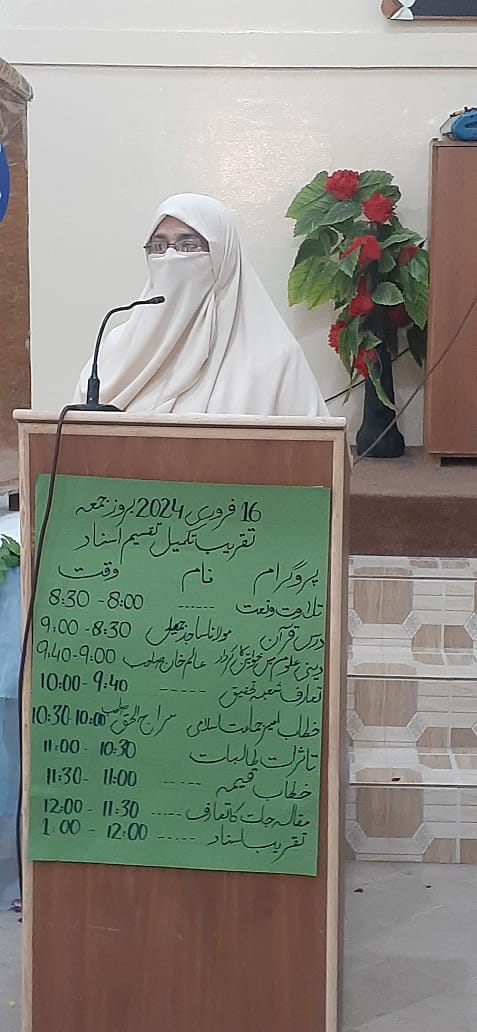 16 فروری 2024 بروز جمعہ
تقریب تکمیل تقسیم اسناد
پروگرام نام وقت
تلاوت ونعت ----- 8:00 - 8:30
درس قرآن مولانا ساجد جمیل 8:30 - 9:00
دینی علوم میں خواتین کا کردار عالم خان صاحب 9:00 - 9:40
تعارف شعبہ تحقیق ----- 9:40 - 10:00
خطاب امیر جماعت اسلامی سراج الحق صاحب 10:00 - 10:30
تاثرات طالبات 10:30 - 11:00
خطاب قیمہ ----- 11:00 - 11:30
مقالہ جات کا تعارف ----- 11:30 - 12:00
تقریب اسناد ----- 12:00 - 1:00